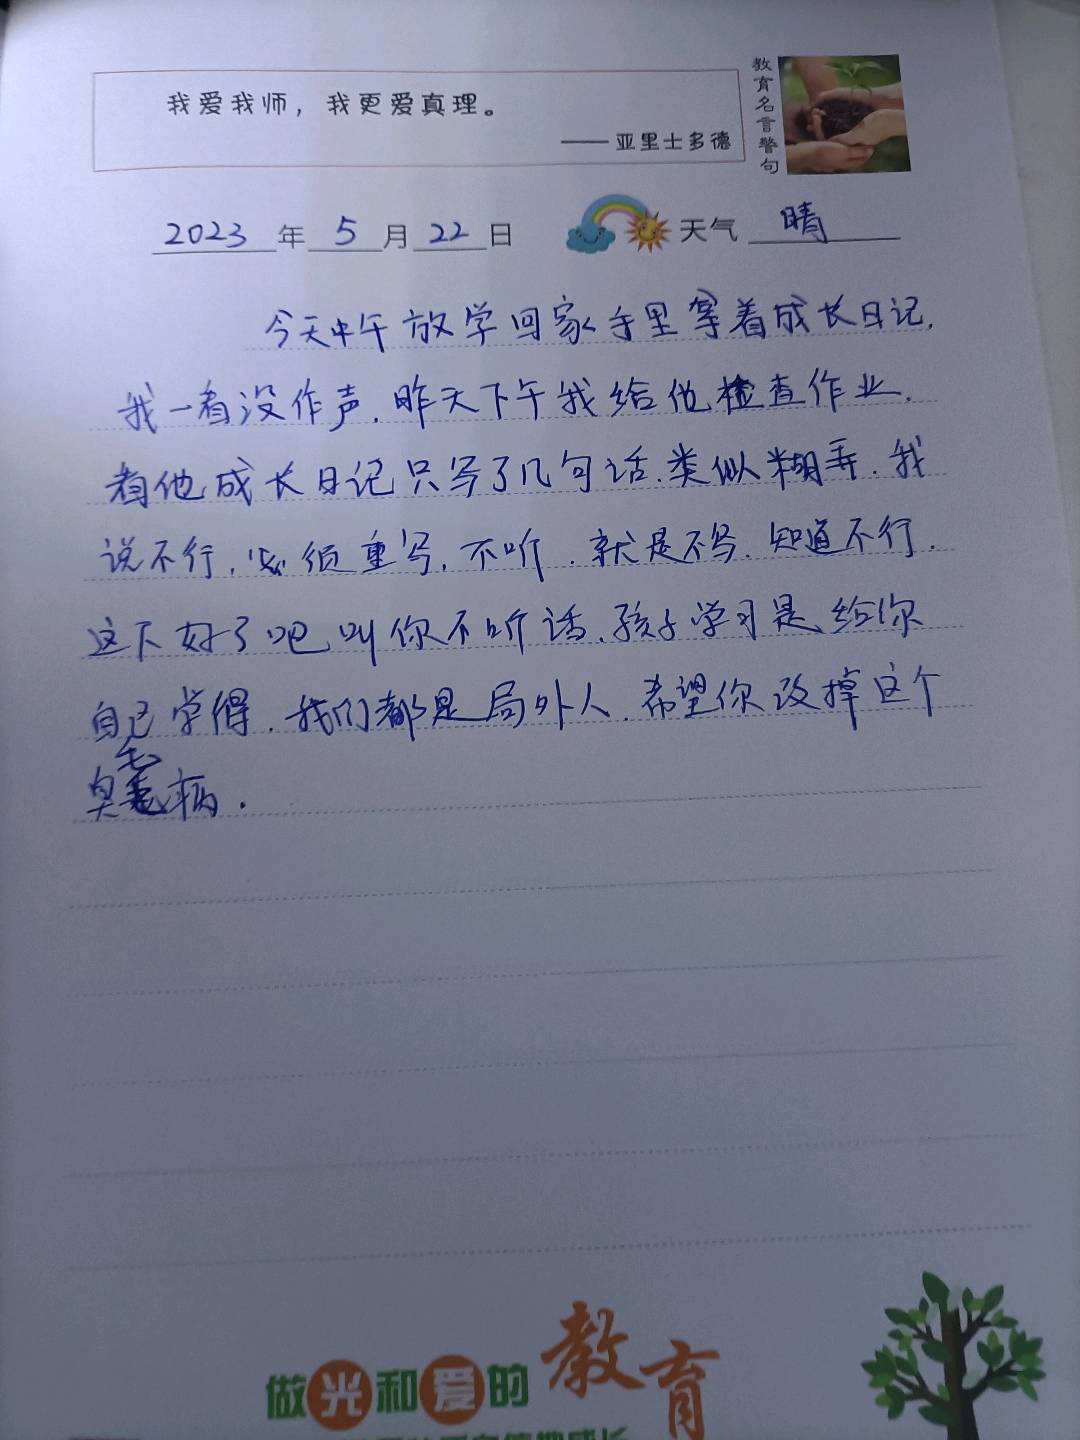 我爱我师，我更爱真理。
——亚里士多德
教育名言警句
2023年5月22日 天气 晴
今天中午放学回家手里拿着成长日记,
我一看没作声.昨天下午我给他检查作业.
看他成长日记只写了几句话.类似糊弄.我
说不行,必须重写,不听.就是不写.知道不行.
这下好了吧叫你不听话.孩子学习是给你
自己学得.我们都是局外人.希望你改掉这个
臭毛病.
做光和爱的教育